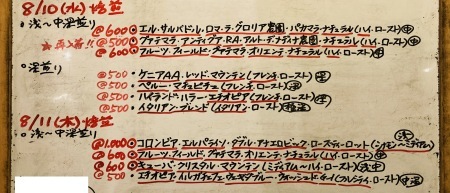 8/10(水)焙煎
○浅〜中深煎り
@600○エル・サルバドル.ロマ・ラ・グロリア農園・パカマラ・ナチュラル(ハイ・ロースト)㊥
★再入荷!!@500○グァテマラ・アンティグア・RA.アルト・デ・メディナ農園・ナチュラル(ハイ・ロースト)㊥
@600○フルーツ・フィールド・グァテマラ・オリエンテ・ナチュラル(ハイ・ロースト)㊥
○深煎り
@500○ケニアAA.レッド.マウンテン(フレンチ.ロースト)
@500○ペルー・マチュピチュ(フレンチ.ロースト)
@500○ハイランド・ハラー・エチオピア(フレンチ・ロースト)
@500○イタリアン・ブレンド(イタリアン・ロースト)極深
8/11(木)焙煎
○浅〜中深煎り
@1.000○コロンビア・エルパライソ・ダブル・アナエロビック・ローズティーロット(シナモン〜ミディアム)浅
@600○フルーツ・フィールド・グァテマラ・オリエンテ・ナチュラル(ハイ・ロースト)㊥
@600○キューバ・クリスタル・マウンテン(ミディアム〜ハイ・ロースト)浅中
@500○エチオピア・イルガチェフェ・ウォッシュド・G-1(フルシティ・ロースト)中深